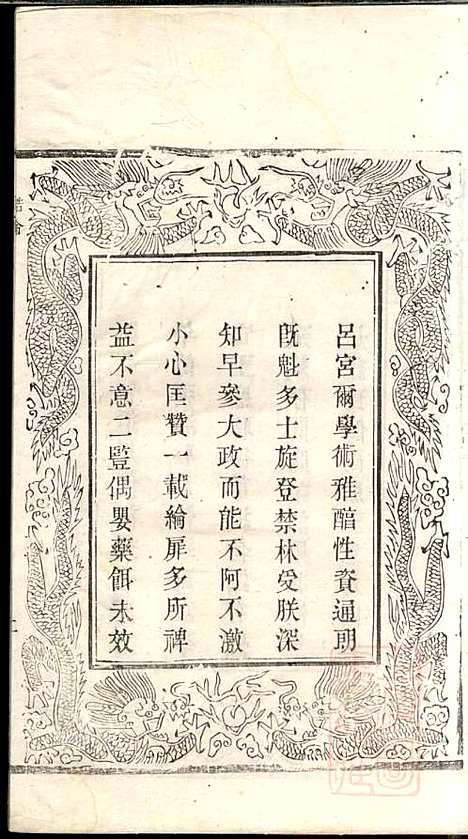 呂宮爾學術雅醇性資通明
旣魁多士旋登禁林受朕深
知早參大政而能不阿不激
小心匡贊一載綸扉多所裨
益不意二豎偶嬰藥餌未效
誥命
二